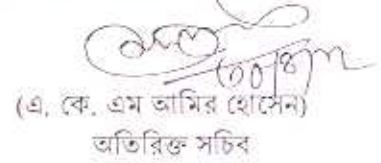 (এ, কে, এম আমির হোসেন)
অতিরিক্ত সচিব